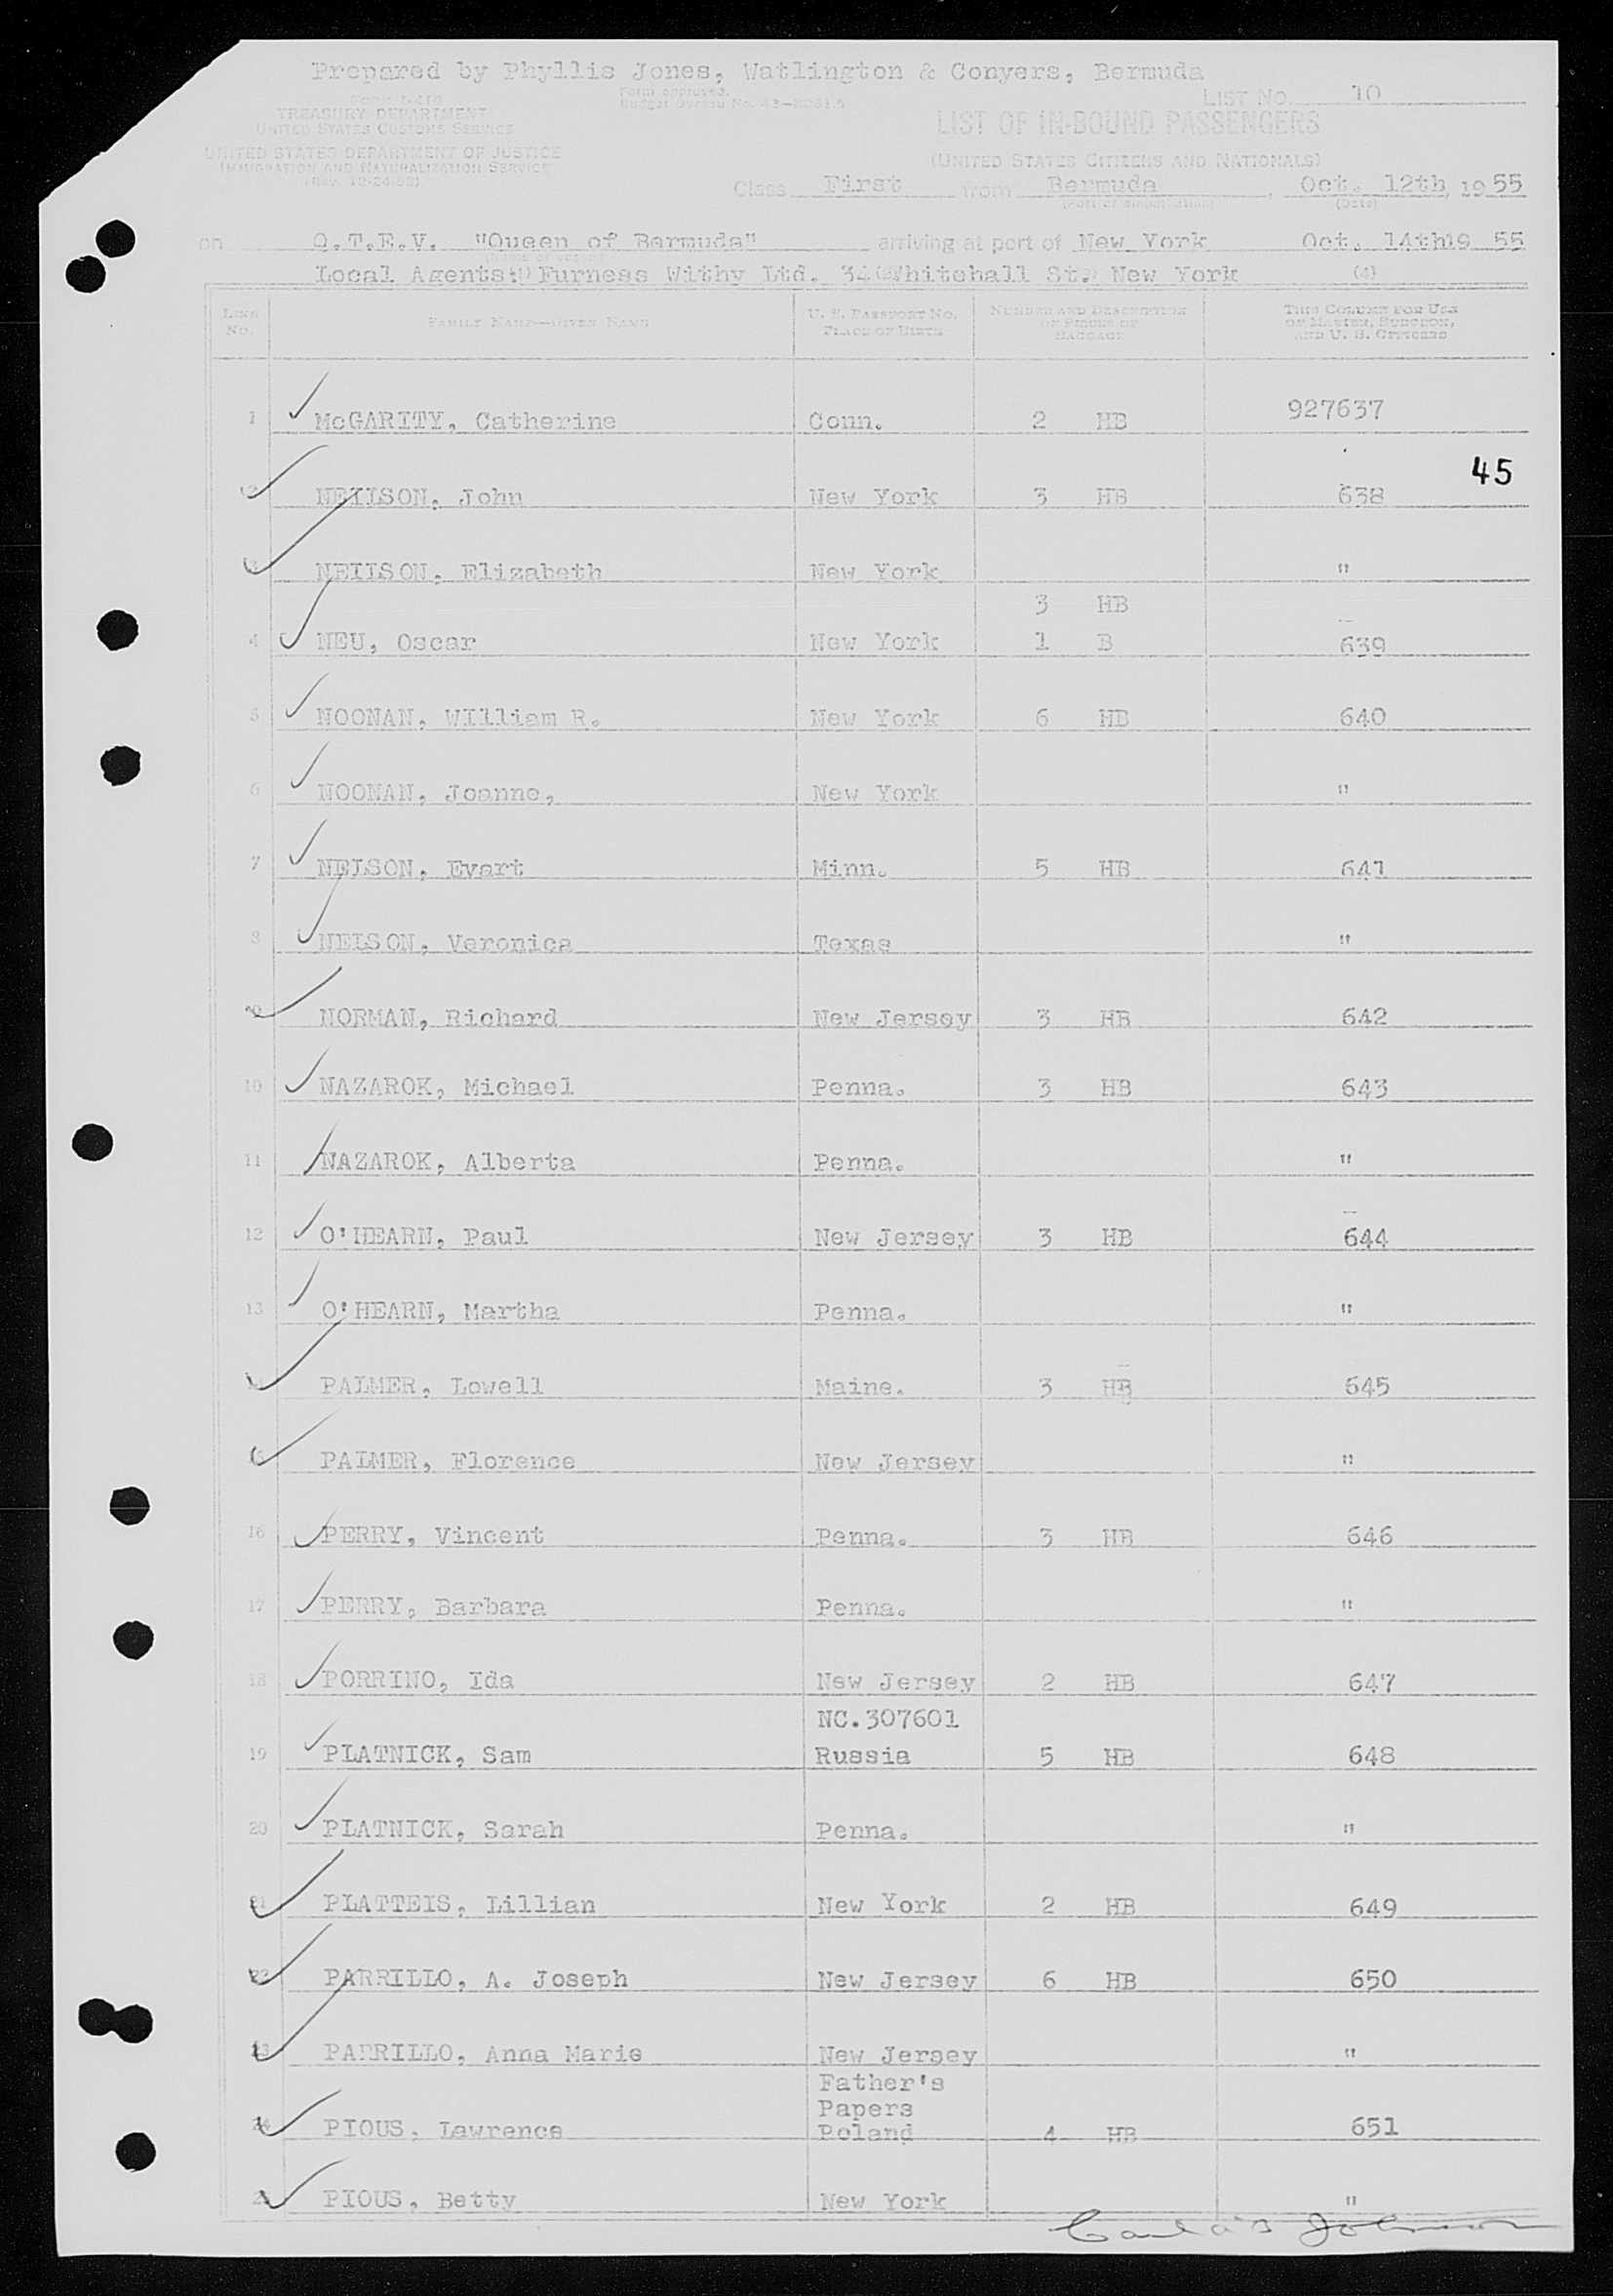 Prepared by Phyllis Jones, Watlington & Conyers, Bermuda
Form I-418
TREASURY DEPARTMENT
UNITED STATES CUSTOMS SERVICE
UNITED STATES DEPARTMENT OF JUSTICE
IMMIGRATION AND NATURALIZATION SERVICE
Form approved.
Budget Bureau No. 43-
LIST NO. 10
LIST OF IN-BOUND PASSENGERS
(UNITED STATES CITIZENS AND NATIONALS)
Class First from Bermuda, Oct. 12th, 1955
(Port of embarkation) (Date)
on Q.T.E.V. "Queen of Bermuda" arriving at port of New York Oct. 14th 19 55
Local Agents: Furness Withy Ltd. 34 Whitehall St. New York (4)
LINE NO. FAMILY NAME—GIVEN NAME U. S. PASSPORT NO. PLACE OF BIRTH NUMBER AND DESCRIPTION OF PIECES OF BAGGAGE THIS COLUMN FOR USE OF MASTER, SURGEON, AND U. S. OFFICERS
1 McGARITY, Catherine Conn. 2 HB 927637
45
2 NEIISON, John New York 3 HB 638
3 NEIISON, Elizabeth New York "
3 HB
4 NEU, Oscar New York 1 B 639
5 NOONAN, WIlliam R. New York 6 HB 640
6 NOONAN, Joanne, New York "
7 NELSON, Evart Minn. 5 HB 641
8 NELSON, Veronica Texas "
9 NORMAN, Richard New Jersey 3 HB 642
10 NAZAROK, Michael Penna. 3 HB 643
11 NAZAROK, Alberta Penna. "
12 O'HEARN, Paul New Jersey 3 HB 644
13 O'HEARN, Martha Penna. "
PALMER, Lowell Maine. 3 HB 645
15 PALMER, Florence New Jersey "
16 PERRY, Vincent Penna. 3 HB 646
17 PERRY, Barbara Penna. "
18 PORRINO, Ida New Jersey 2 HB 647
NC.307601
19 PLATNICK, Sam Russia 5 HB 648
20 PLATNICK, Sarah Penna. "
21 PLATTEIS, Lillian New York 2 HB 649
22 PARRILLO, A. Joseph New Jersey 6 HB 650
23 PARRILLO, Anna Marie New Jersey "
Father's
Papers
24 PIOUS, Lawrence Poland 4 HB 651
25 PIOUS, Betty New York "
Johnson